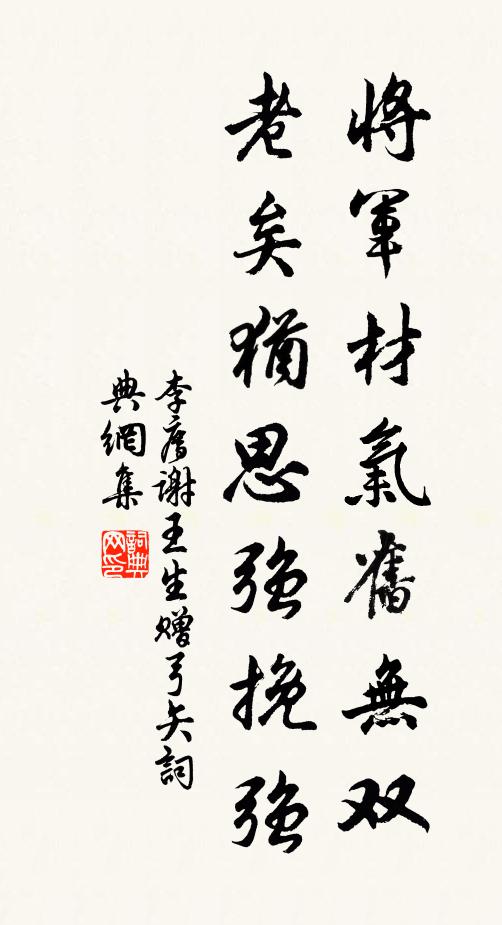 將軍材氣舊無双
老矣猶思強挽強
李廌謝王生贈弓矢詞
典網集
詞典
网印